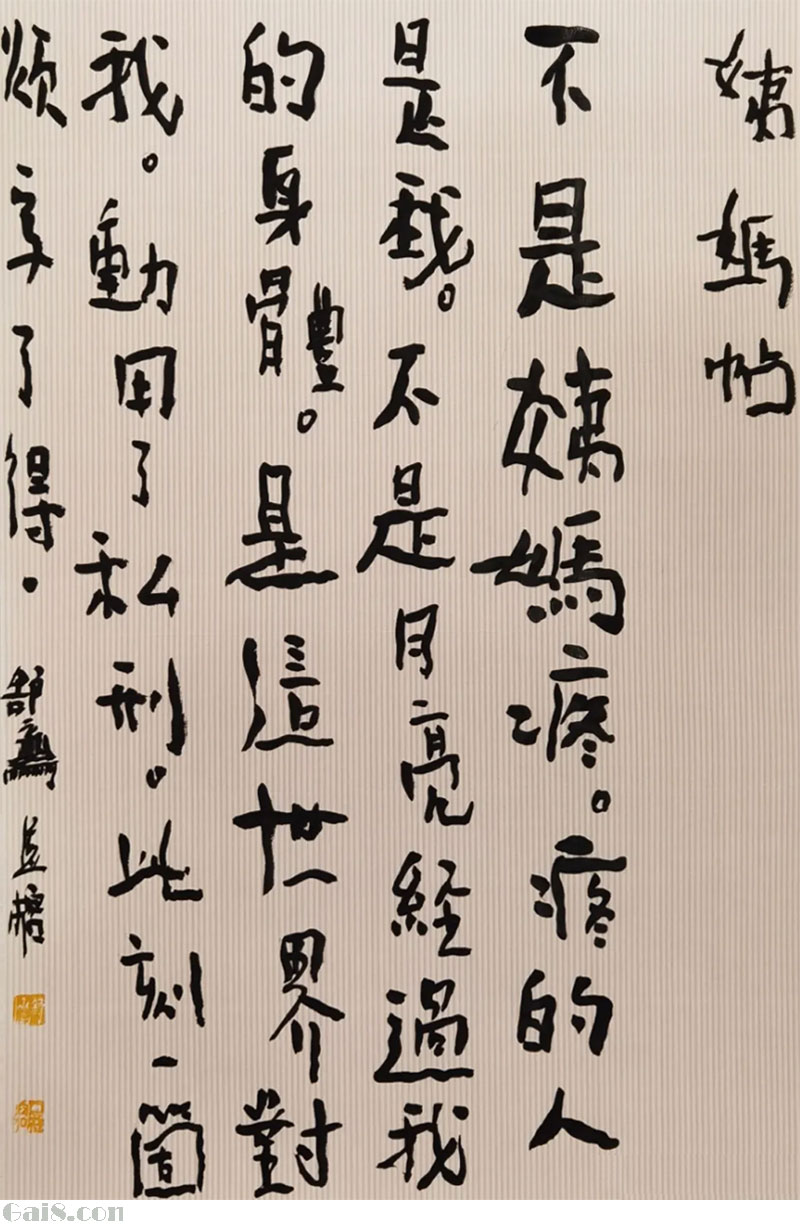 姨媽帖
不是姨媽疼。疼的人
是我。不是月亮經過我
的身體。是這世界對
我。動用了私刑。此刻一箇
煩字了得。
Gai8.con